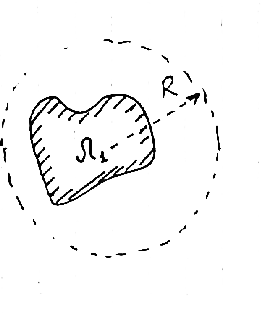 R
Ω₁